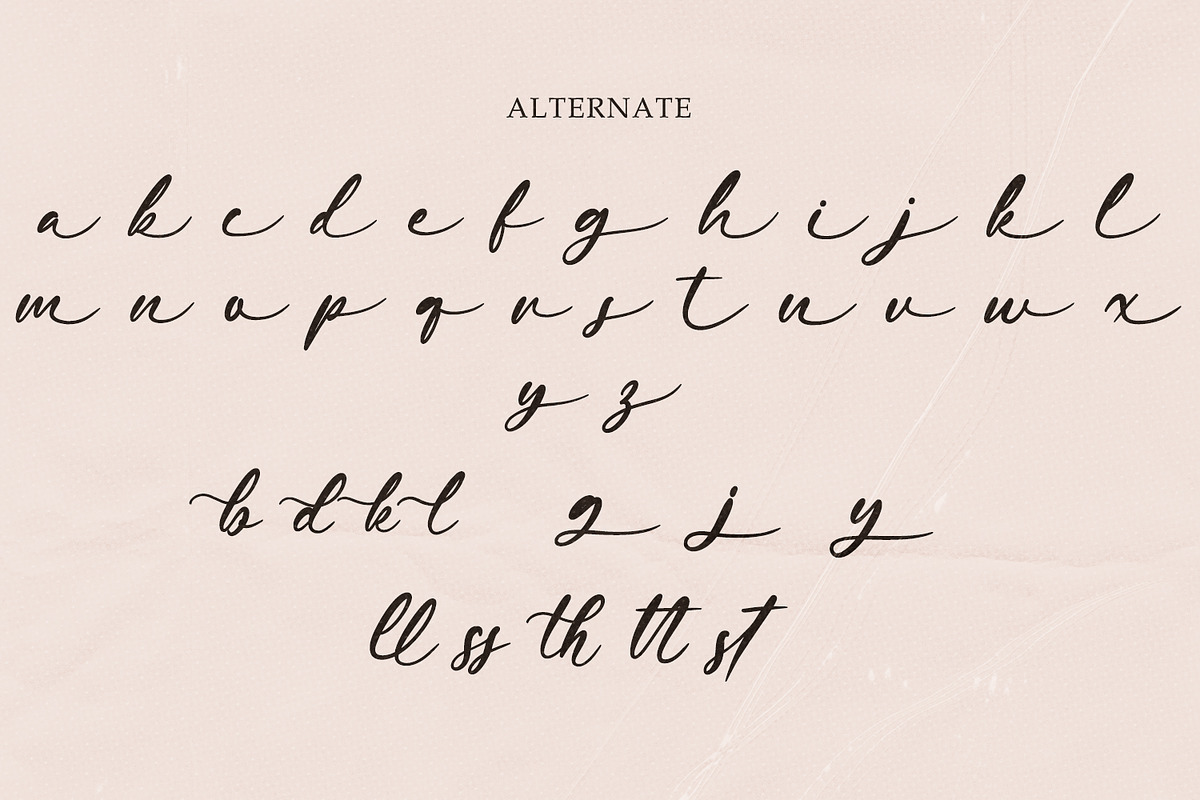 ALTERNATE
a b c d e f g h i j k l
m n o p q r s t u v w x
y z
b d k l g j y
ll ss th tt st